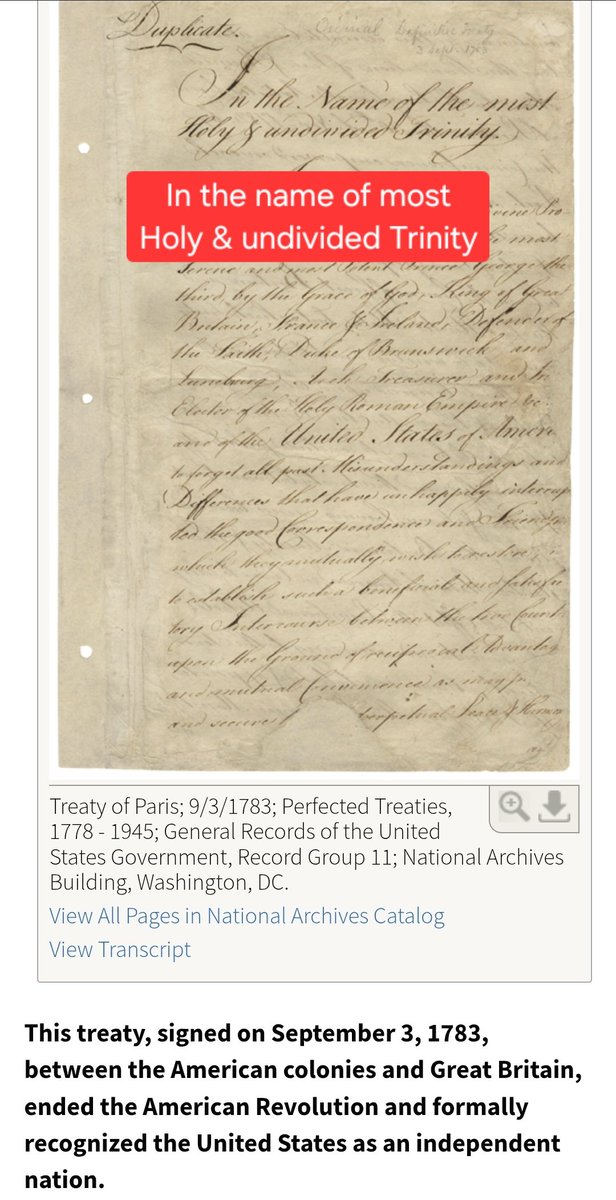 Duplicate.
Original Definitive Treaty
3 Sept. 1783
In the Name of the most
Holy & undivided Trinity.
In the name of most
Holy & undivided Trinity
vine Pro
most
Serene and most Potent Prince George the
third, by the Grace of God, King of Great
Britain, France & Ireland, Defender of
the Faith, Duke of Brunswick and
Luneburg, Arch Treasurer and
Elector of the Holy Roman Empire &c.
and of the United States of Ameri
to forget all past Misunderstandings and
Differences that have unhappily interrup
ted the good Correspondence and Friends
which they mutually wish to restore;
to establish such a beneficial and satisfac
tory Intercourse between the two Count
upon the Ground of reciprocal Advantag
and mutual Convenience as may
and secure perpetual Peace & Harmo
Treaty of Paris; 9/3/1783; Perfected Treaties,
1778 - 1945; General Records of the United
States Government, Record Group 11; National Archives
Building, Washington, DC.
View All Pages in National Archives Catalog
View Transcript
This treaty, signed on September 3, 1783,
between the American colonies and Great Britain,
ended the American Revolution and formally
recognized the United States as an independent
nation.